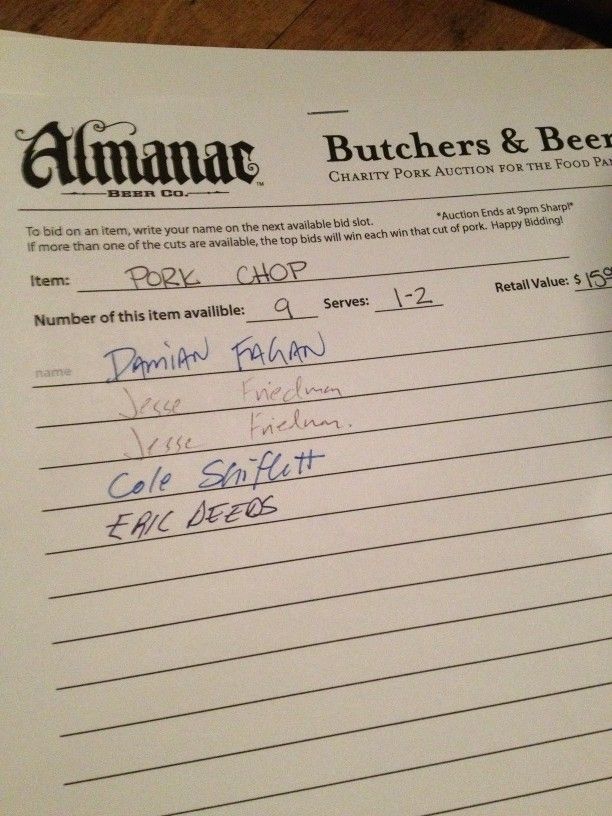 Almanac
BEER CO.
™
Butchers & Beer
CHARITY PORK AUCTION FOR THE FOOD PAN
To bid on an item, write your name on the next available bid slot.
*Auction Ends at 9pm Sharp!*
If more than one of the cuts are available, the top bids will win each win that cut of pork. Happy Bidding!
Item: PORK CHOP
Number of this item availible: 9 Serves: 1-2 Retail Value: $ 15
name DAMIAN FAGAN
Jesse Friedman
Jesse Friedman.
Cole Shiflett
ERIC DEEDS